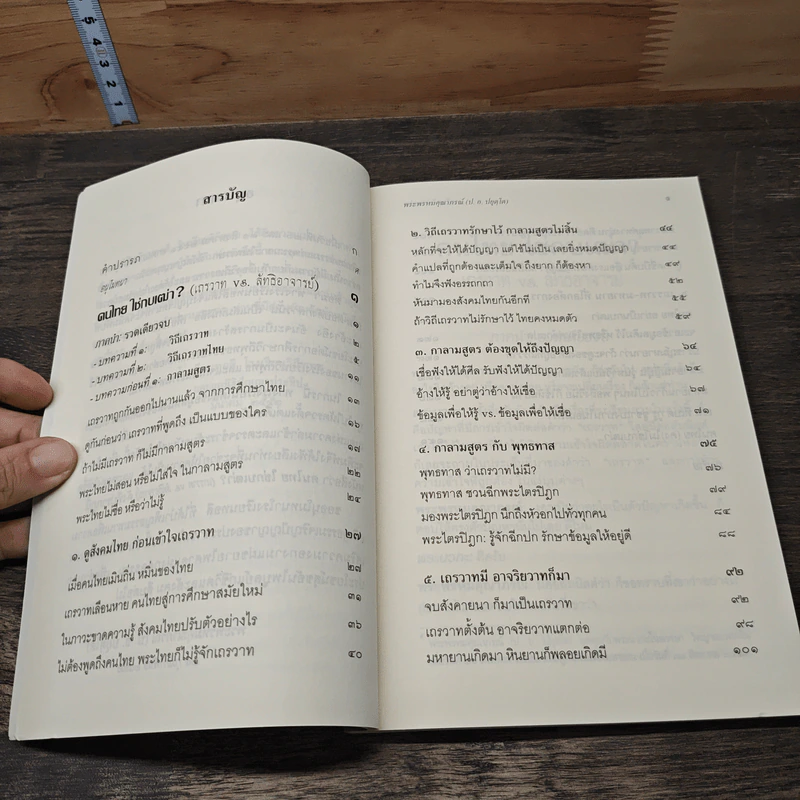 5 4 3 2 1
สารบัญ
คำปรารภ ก
อนุโมทนา
คนไทย ใช่กบเฒ่า? (เถรวาท vs. ลัทธิอาจารย์) ๑
ภาคนำ: รวดเดียวจบ ๑
- บทความที่ ๑: วิถีเถรวาท ๒
- บทความที่ ๒: วิถีเถรวาทไทย ๕
- บทความก่อนที่ ๑: กาลามสูตร ๑๑
เถรวาทถูกกันออกไปนานแล้ว จากการศึกษาไทย ๑๓
ดูกันก่อนว่า เถรวาทที่พูดถึง เป็นแบบของใคร ๑๖
ถ้าไม่มีเถรวาท ก็ไม่มีกาลามสูตร ๑๗
พระไทยไม่สอน หรือไม่ใส่ใจ ในกาลามสูตร ๒๒
พระไทยไม่ซื่อ หรือว่าไม่รู้ ๒๔
๑. ดูสังคมไทย ก่อนเข้าใจเถรวาท ๒๗
เมื่อคนไทยเมินถิ่น หมิ่นของไทย ๒๗
เถรวาทเลือนหาย คนไทยสู่การศึกษาสมัยใหม่ ๓๑
ในภาวะขาดความรู้ สังคมไทยปรับตัวอย่างไร ๓๖
ไม่ต้องพูดถึงคนไทย พระไทยก็ไม่รู้จักเถรวาท ๔๐
พระพรหมคุณาภรณ์ (ป. อ. ปยุตฺโต)
๒. วิถีเถรวาทรักษาไว้ กาลามสูตรไม่สิ้น ๔๔
หลักที่จะให้ได้ปัญญา แต่ใช้ไม่เป็น เลยยิ่งหมดปัญญา ๔๔
คำแปลที่ถูกต้องและเต็มใจ ถึงยาก ก็ต้องหา ๔๙
ทำไมจึงฟังอรรถกถา ๕๒
หันมามองสังคมไทยกันอีกที ๕๕
ถ้าวิถีเถรวาทไม่รักษาไว้ ไทยคงหมดตัว ๕๙
๓. กาลามสูตร ต้องพูดให้ถึงปัญญา ๖๔
เชื่อฟังให้ได้ศีล รับฟังให้ได้ปัญญา ๖๔
อ้างให้รู้ อย่าดู่ว่าอ้างให้เชื่อ ๖๗
ข้อมูลเพื่อให้รู้ vs. ข้อมูลเพื่อให้เชื่อ ๗๑
๔. กาลามสูตร กับ พุทธทาส ๗๕
พุทธทาส ว่าเถรวาทไม่มี? ๗๖
พุทธทาส ชวนฉีกพระไตรปิฎก ๗๙
มองพระไตรปิฎก นึกถึงหัวอกไปทั่วทุกคน ๘๔
พระไตรปิฎก: รู้จักฉีกปก รักษาข้อมูลให้อยู่ดี ๘๘
๕. เถรวาทมี อาจริยวาทก็มา ๙๒
จบสังคายนา ก็มาเป็นเถรวาท ๙๒
เถรวาทตั้งต้น อาจริยวาทแตกต่อ ๙๘
มหายานเกิดมา หินยานก็พลอยเกิดมี ๑๐๑